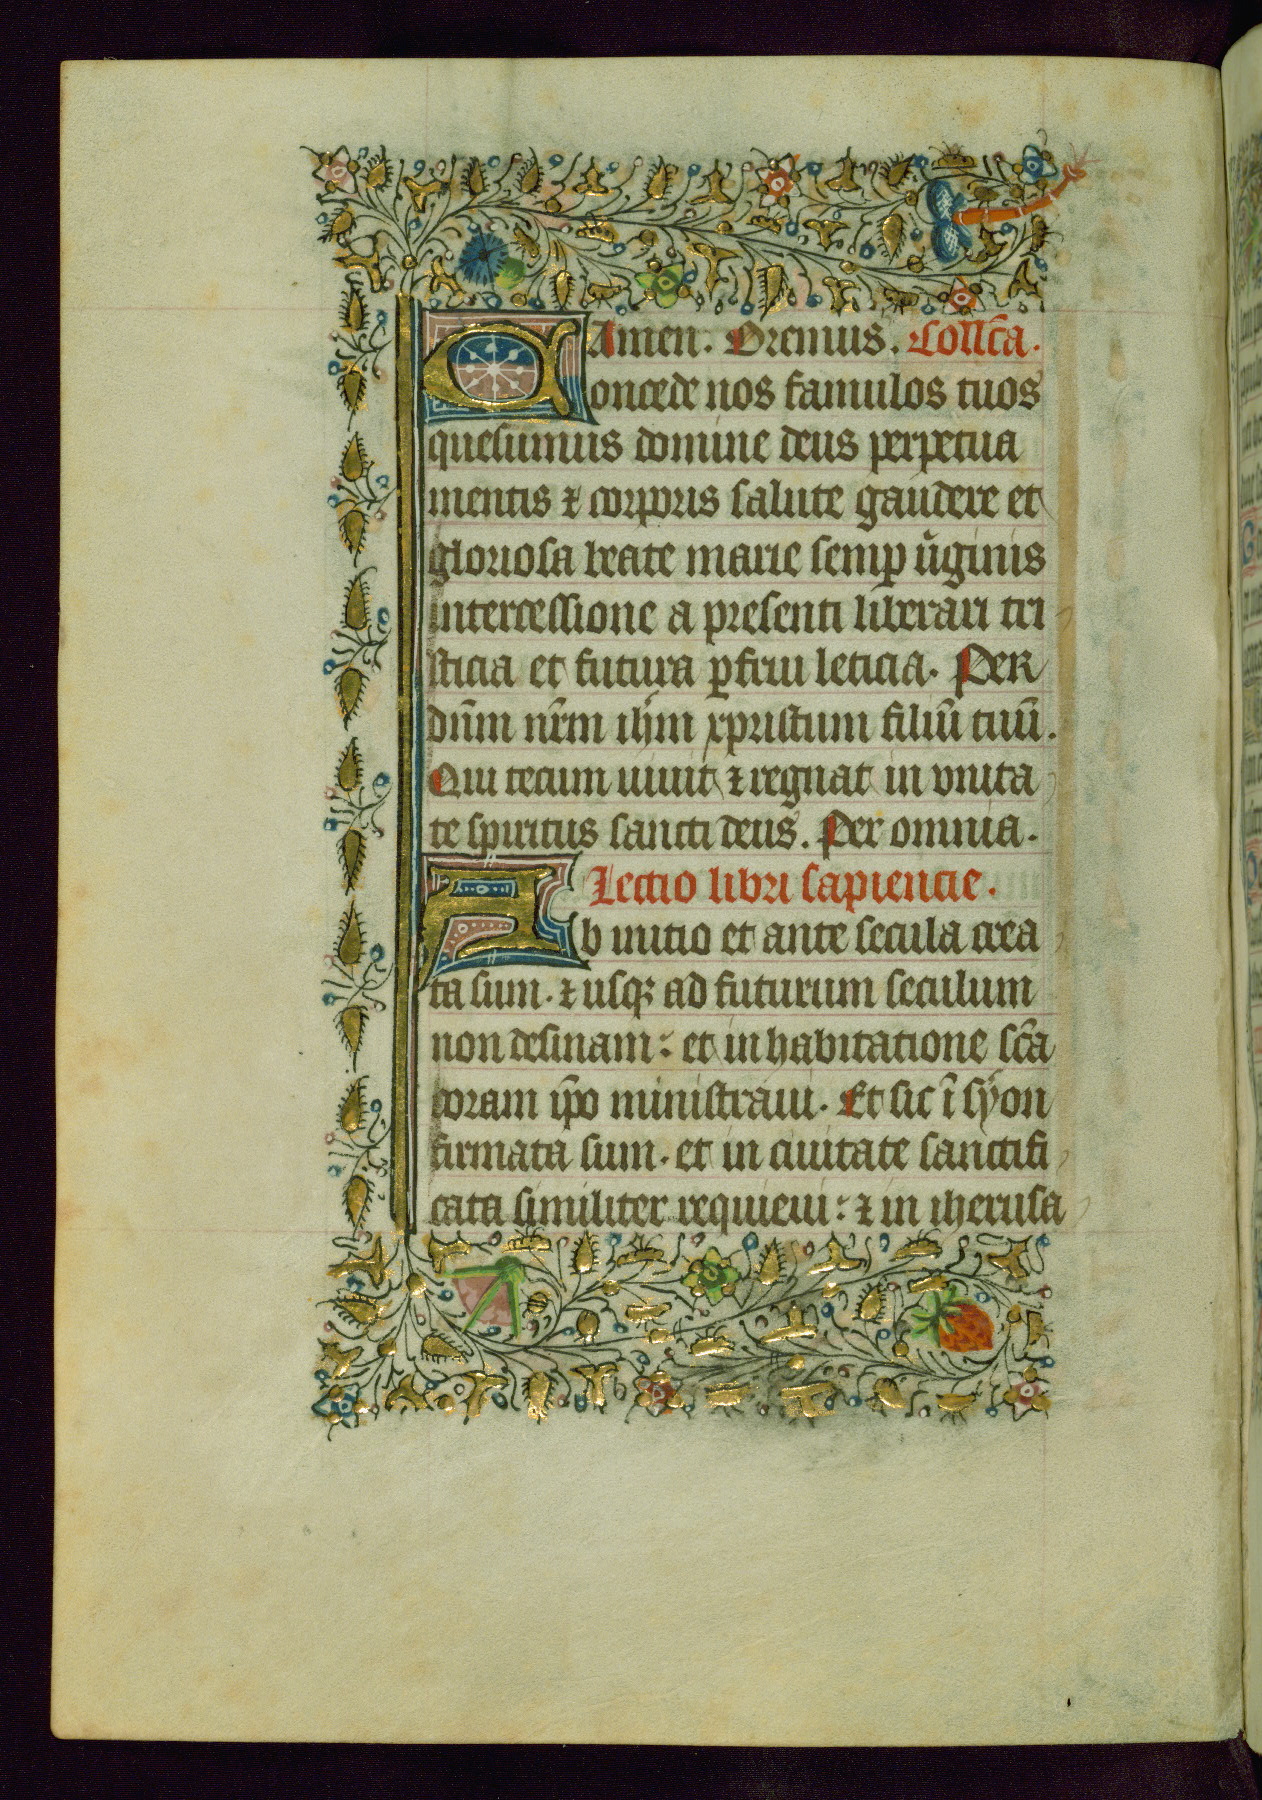 Amen. Oremus. Collc̄a.
Concede nos famulos tuos
quesumus domine deus perpetua
mentis ⁊ corporis salute gaudere et
gloriosa beate marie semp ũginis
intercessione a presenti liberari tri
sticia et futura ꝑfrui leticia. Per
dn̄m nr̄m ihm̄ xpristum filiū tuū.
Qui tecum uiuit ⁊ regnat in vnita
te spiritus sancti deus. Per omnia.
Lectio libri sapiencie.
Ab initio et ante secula crea
ta sum. ⁊ usqꝫ ad futurum seculum
non desinam: et in habitatione sc̄a
coram ip̄o ministraui. Et sic ī syon
firmata sum. et in ciuitate sanctifi
cata similiter requieui: ⁊ in iherusa